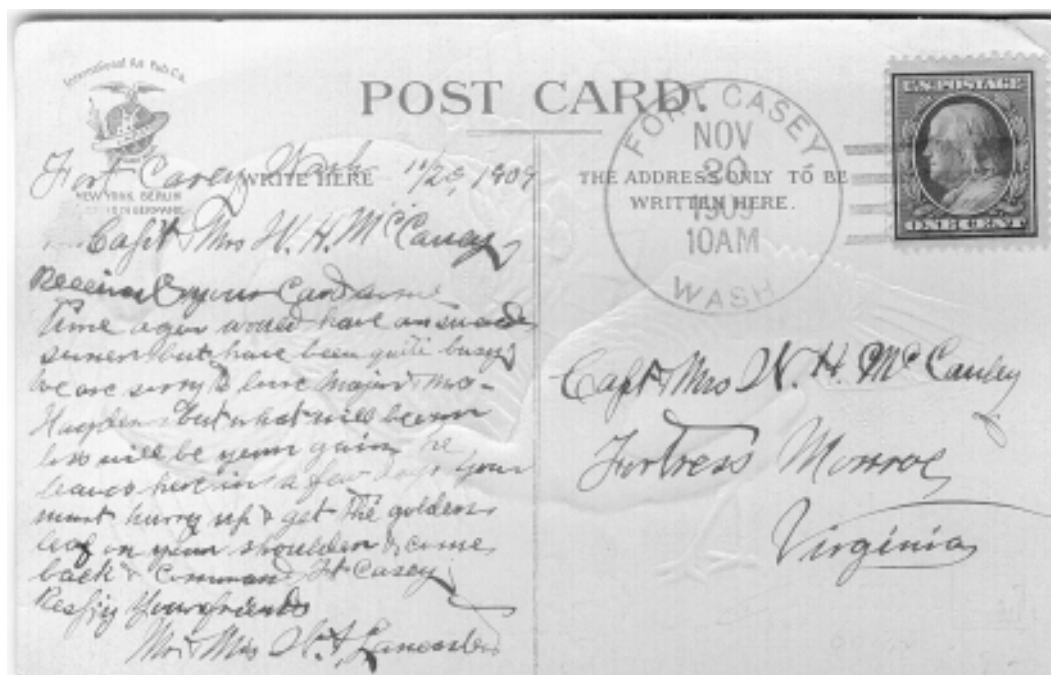 International Art Pub. Co.
NEW YORK BERLIN
POST CARD.
WRITE HERE
THE ADDRESS ONLY TO BE
WRITTEN HERE.
FORT CASEY
NOV
20
1909
10AM
WASH
U.S. POSTAGE
ONE CENT
Fort Casey Wash 11/20, 1909
Capt & Mrs W. H. McCauley
Received your Card some
time ago would have answered
but have been quite busy
we are sorry to lose Major & Mrs
Hayden but what will be our
loss will be your gain, he
leaves here in a few days You
must hurry up & get the golden
leaf on your shoulder & come
back & Command Ft Casey
Your friends
Mr & Mrs
Capt & Mrs W. H. McCauley
Fortress Monroe
Virginia